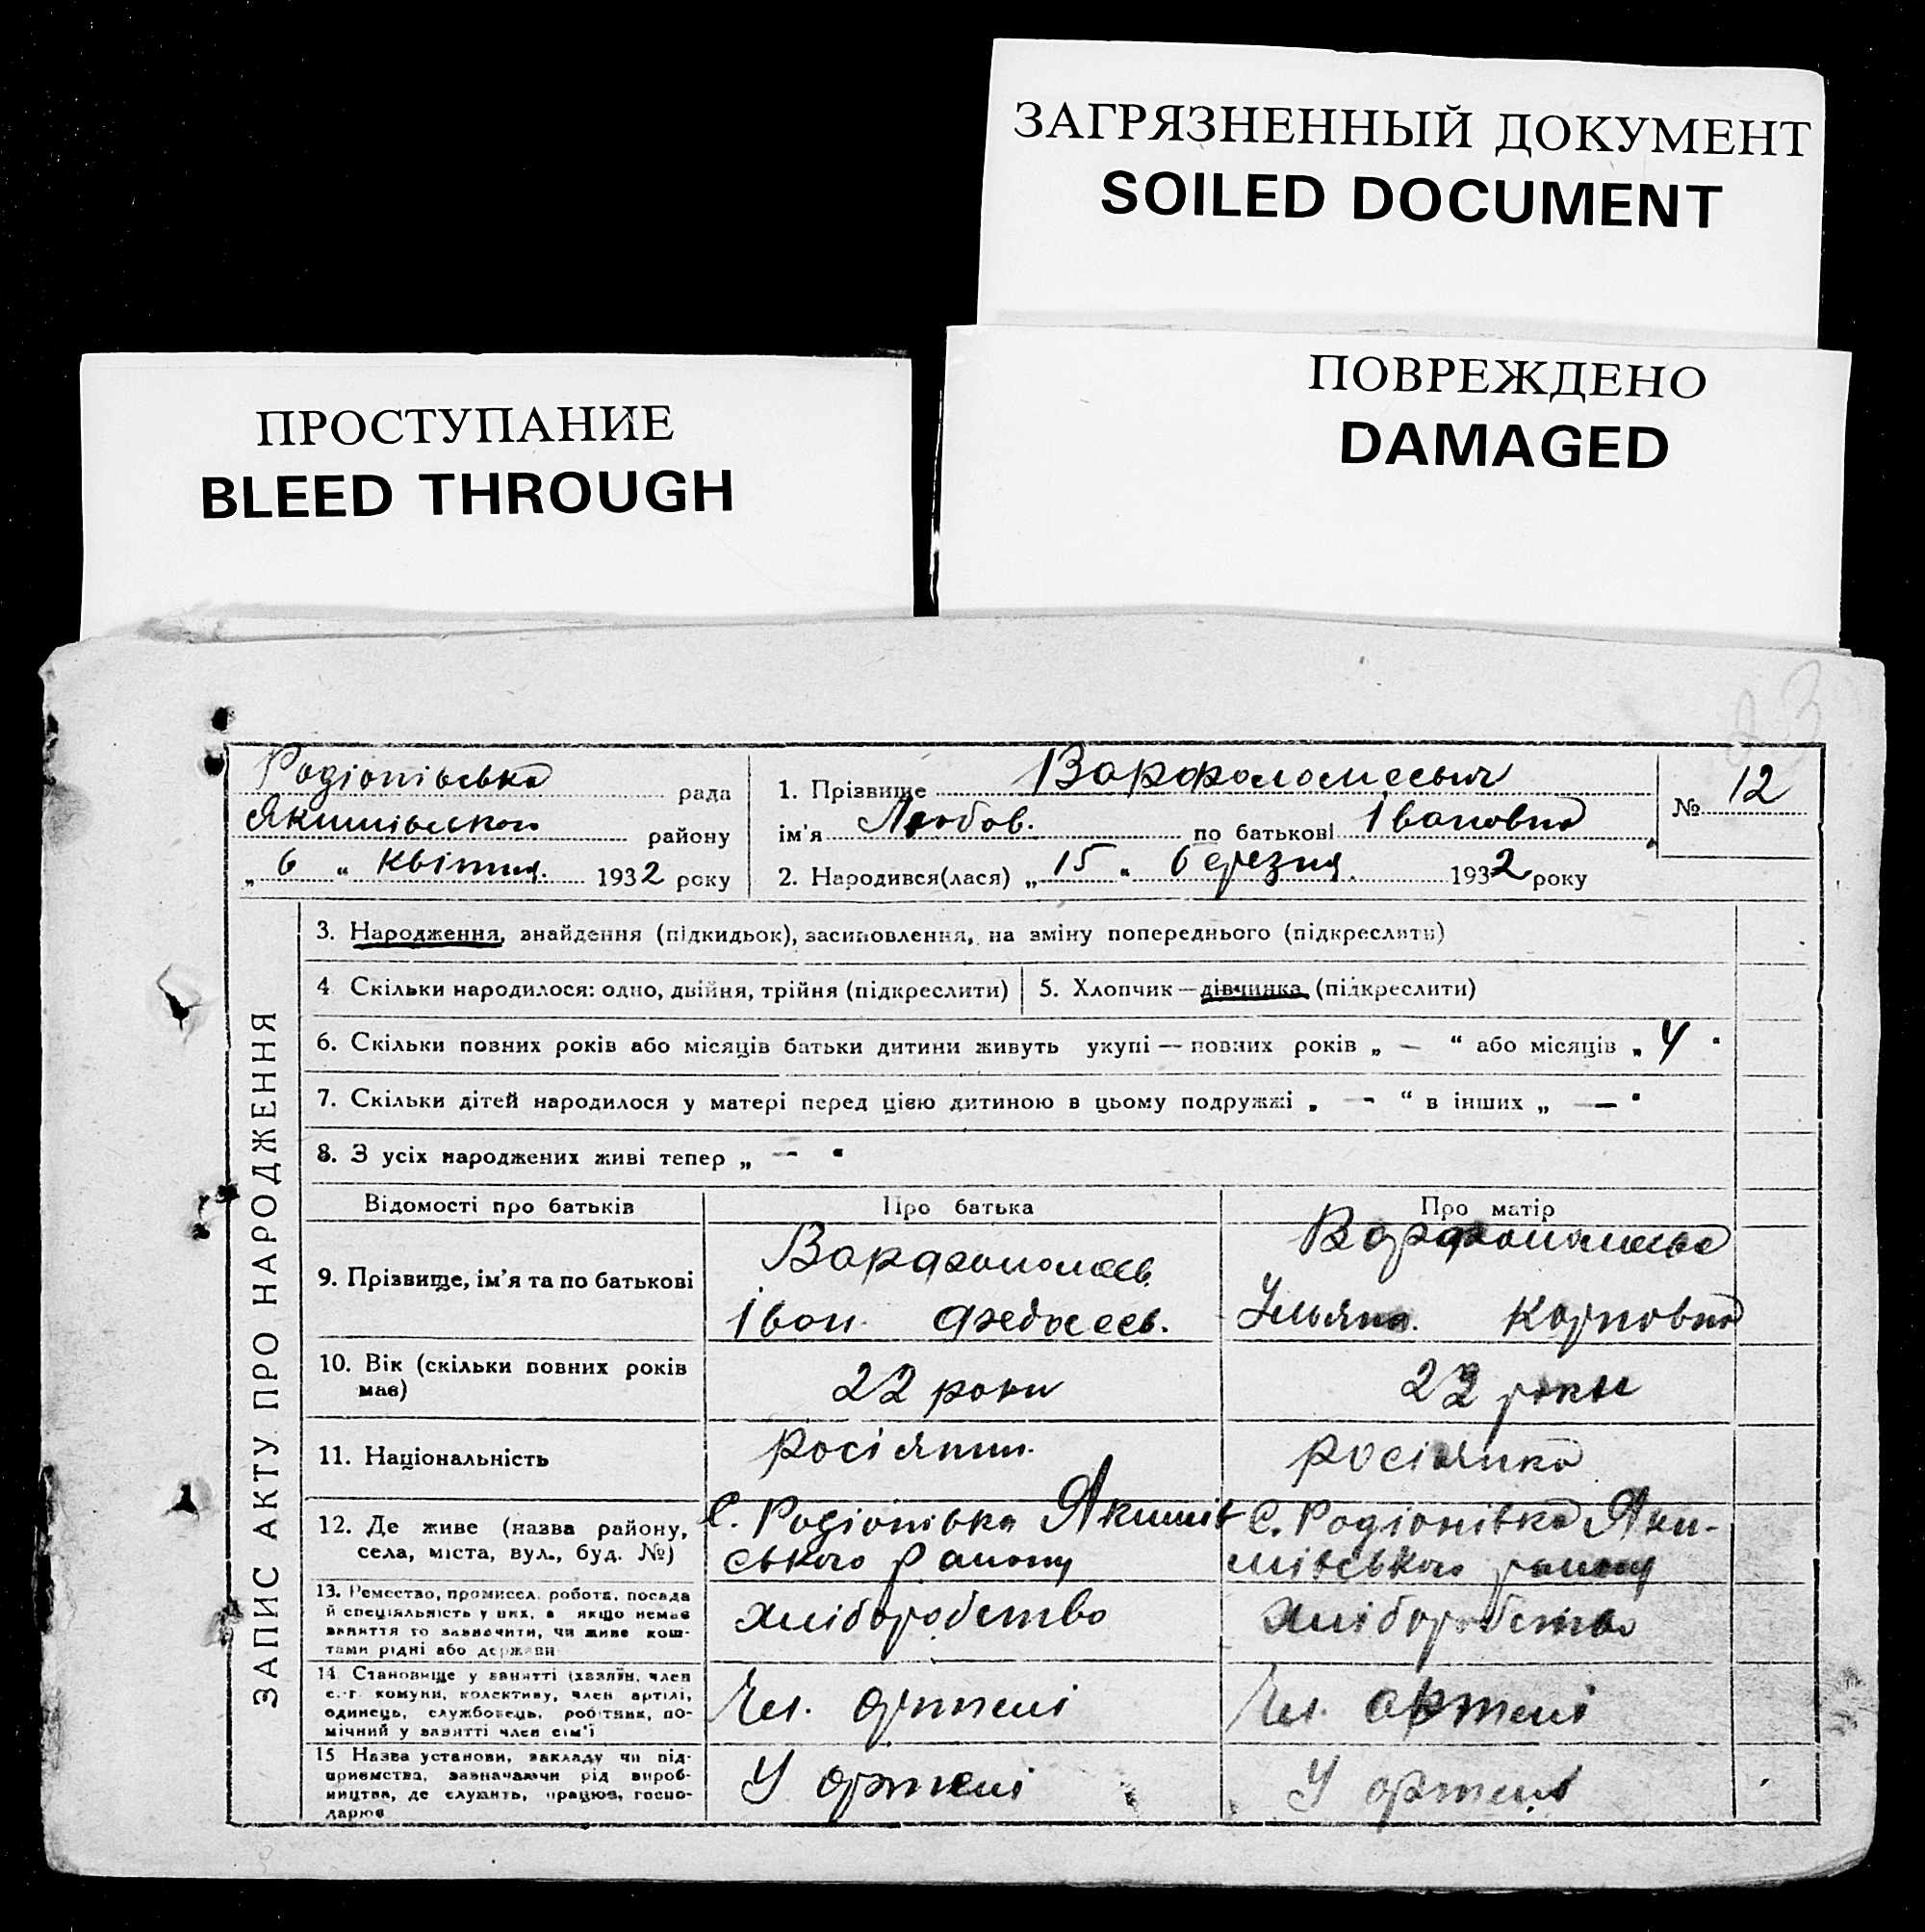 ЗАГРЯЗНЕННЫЙ ДОКУМЕНТ
SOILED DOCUMENT
ПОВРЕЖДЕНО
DAMAGED
ПРОСТУПАНИЕ
BLEED THROUGH
Родіонівська рада
Якимівського району
„ 6 “ квітня. 1932 року
1. Прізвище
ім'я Любов. по батькові Івановна
№ 12
2. Народився(лася) „ 15 “ березня. 1932 року
ЗАПИС АКТУ ПРО НАРОДЖЕННЯ
3. Народження, знайдення (підкидьок), засиновлення, на зміну попереднього (підкреслить)
4 Скільки народилося: одно, двійня, трійня (підкреслити)
5. Хлопчик — дівчинка (підкреслити)
6. Скільки повних років або місяців батьки дитини живуть укупі — повних років „ — “ або місяців „ 4 “
7. Скільки дітей народилося у матері перед цією дитиною в цьому подружжі „ — “ в інших „ — “
8. З усіх народжених живі тепер „ — “
Відомості про батьків Про батька Про матір
9. Прізвище, ім'я та по батькові
Іван
Уляна. Карповна
10. Вік (скільки повних років
має)
22 роки
22 роки
11. Національність
росіянин.
росіянка
12. Де живе (назва району,
села, міста, вул., буд. №)
С. Родіонівка Якимів
ського району
С. Родіонівка Яки-
мівського району
13. Ремество, промисел, робота, посада
й спеціяльність у них, а якщо немає
заняття то зазначити, чи живе кош-
тами рідні або держави
хліборобство
хліборобство
14. Становище у занятті (хазяїн, член
с.-г. комуни, колективу, член артілі,
одинець, службовець, робітник, по-
мічний у занятті член сім'ї
Чл. артелі
Чл. артелі
15 Назва установи, закладу чи під-
приємства, зазначаючи рід вироб-
ництва, де служить, працює, госпо-
дарює
У артелі
У артелі